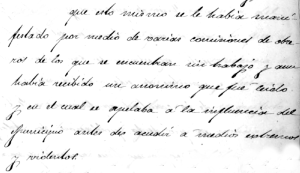 que esto mismo se le habia mani
festado por medio de varias comisiones de obre
ros de los que se encuentran sin trabajo y aun
habia recibido un anonimo que fue leido
y en el cual se apelaba a la influencia del
Municipio antes de acudir a medios extremos
y violentos.